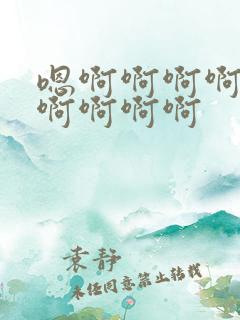 嗯啊啊啊啊
啊啊啊啊
袁静
未经同意禁止转载